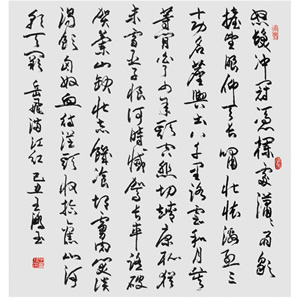 怒髮冲冠憑欄處瀟瀟雨歇
擡望眼仰天長嘯壯懷激烈三
十功名塵與土八千里路雲和月莫
等閒白了少年頭空悲切靖康恥猶
未雪臣子恨何時滅駕長車踏破
賀蘭山缺壯志飢餐胡虜肉笑談
渴飲匈奴血待從頭收拾舊山河
朝天闕 岳飛滿江紅 己丑王